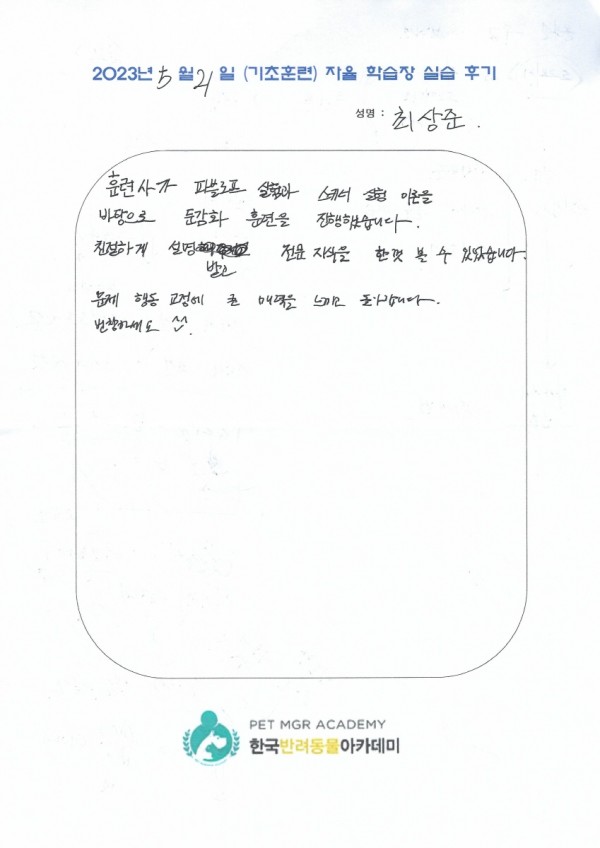 2023년 5월 21일 (기초훈련) 자율 학습장 실습 후기
성명 : 최상준.
훈련사가 파블로프 실험과 스키너 실험 이론을
바탕으로 둔감화 훈련을 진행했습니다.
친절하게 설명 전문 지식을 한껏 볼 수 있었습니다.
받고
문제 행동 교정에 큰 매력을 느끼고 돌아갑니다.
번창하세요 ^^.
PET MGR ACADEMY
한국반려동물아카데미